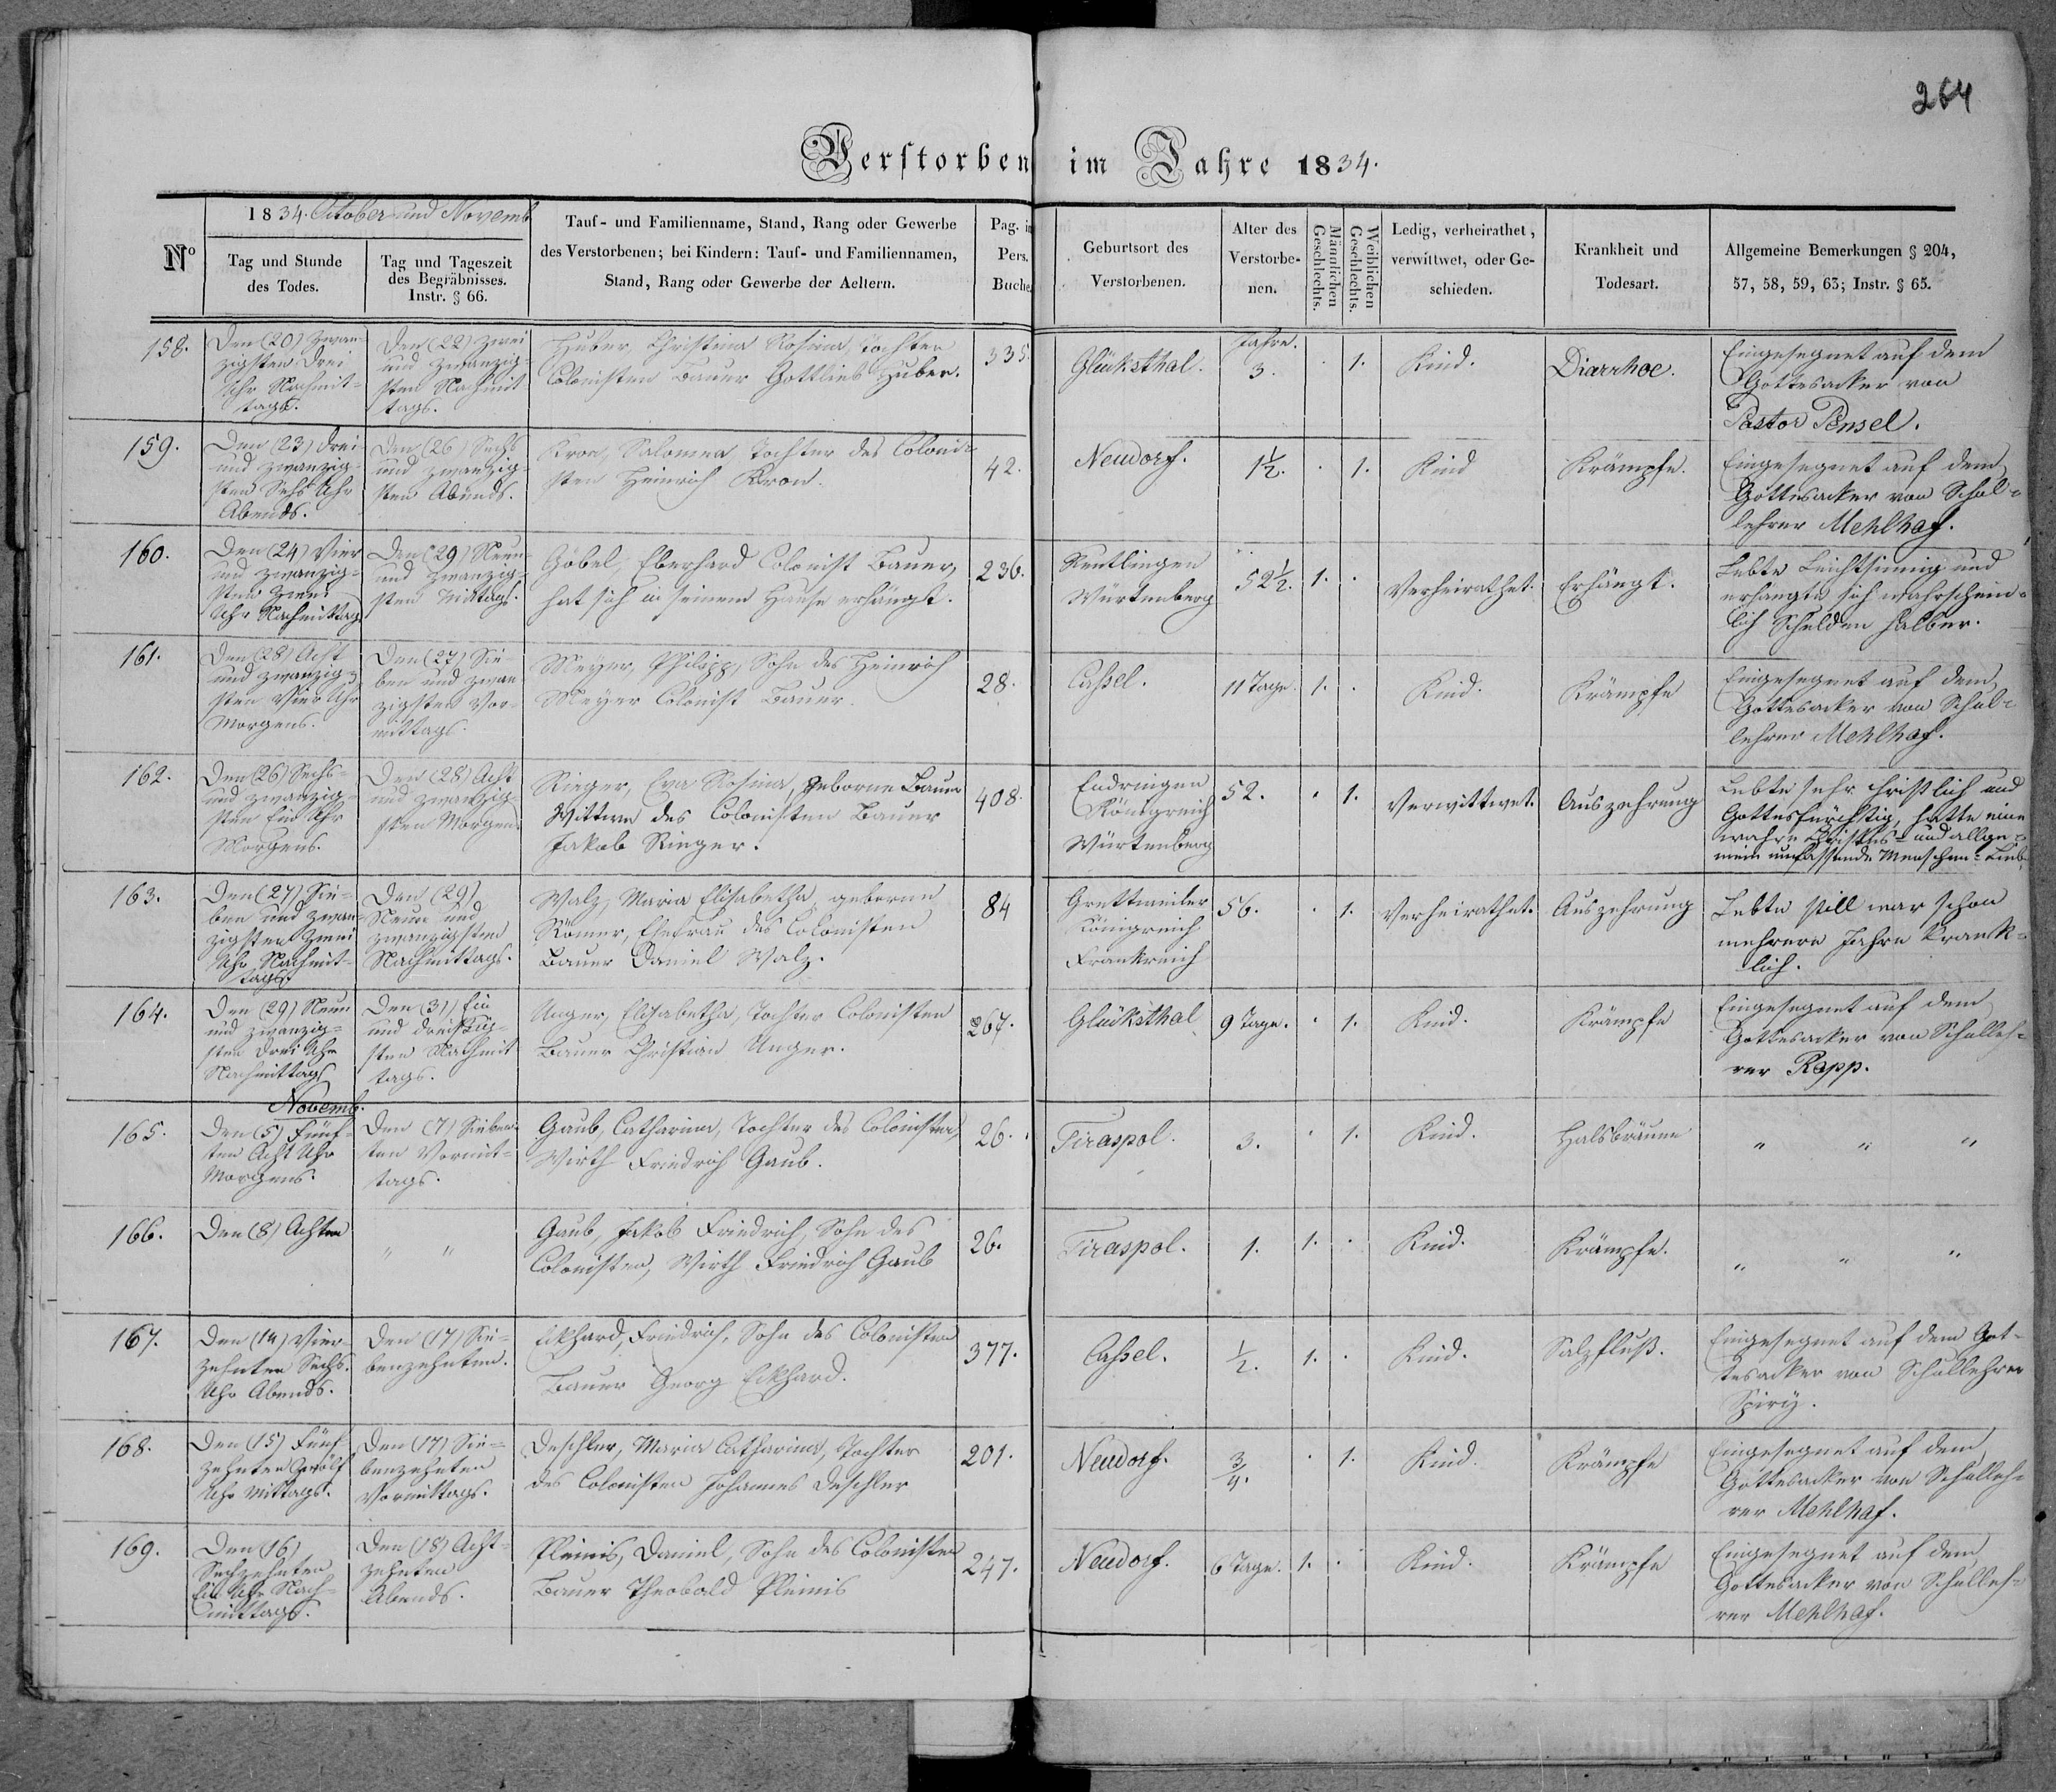 264
Verstorben im Jahre 1834.
1834. October und Novemb
Nº
Tag und Stunde
des Todes.
Tag und Tageszeit
des Begräbnisses.
Instr. § 66.
Tauf- und Familienname, Stand, Rang oder Gewerbe
des Verstorbenen; bei Kindern: Tauf- und Familiennamen,
Stand, Rang oder Gewerbe der Aeltern.
Pag. in
Pers.
Buche.
Geburtsort des
Verstorbenen.
Alter des
Verstorbe-
nen.
Männlichen
Geschlechts.
Weiblichen
Geschlechts.
Ledig, verheirathet,
verwittwet, oder Ge-
schieden.
Krankheit und
Todesart.
Allgemeine Bemerkungen § 204,
57, 58, 59, 63; Instr. § 65.
158.
Den (20) Zwan-
zigsten Drei
Uhr Nachmit-
tags.
Den (22) Zwei
und zwanzig-
sten Nachmit
tags.
Huber, Christina Rosina, Tochter
Colonisten Bauer Gottlieb Huber.
335.
Glüksthal.
Jahre.
3.
1.
Kind.
Diarrhoe.
Eingesegnet auf dem
Gottesacker von
Pastor Pensel.
159.
Den (23) Drei
und zwanzig-
sten Sechs Uhr
Abends.
Den (26) Sechs
und zwanzig-
sten Abends.
Kron, Salomea, Tochter des Coloni-
sten Heinrich Kron.
42.
Neudorf.
1½.
1.
Kind
Krämpfe.
Eingesegnet auf dem
Gottesacker von Schul-
lehrer Mehlhaf.
160.
Den (24) Vier
und zwanzig-
sten Zwei
Uhr Nachmittag
Den (29) Neun-
und zwanzig-
sten Mittags.
Göbel, Eberhard Colonist Bauer,
hat sich in seinem Hause erhängt.
236.
Reutlingen
Würtenberg
52½.
1.
Verheirathet.
Erhängt.
Lebte Leichtsinnig und
erhängte sich wahrschein-
lich Schulden halber.
161.
Den (28) Acht
und zwanzig-
sten Vier Uhr
Morgens.
Den (27) Sie-
ben und zwan
zigsten Vor-
mittags.
Meyer, Philipp, Sohn des Heinrich
Meyer Colonist Bauer.
28.
Caßel.
11 Tage.
1.
Kind.
Krämpfe
Eingesegnet auf dem
Gottesacker von Schul-
lehrer Mehlhaf.
162.
Den (26) Sechs-
und zwanzig-
sten Ein Uhr
Morgens.
Den (28) Acht
und zwanzig-
sten Morgens
Rieger, Eva Rosina, geborne Bauer
Wittwe des Colonisten Bauer
Jakob Rieger.
408.
Endringen
Königreich
Würtenberg
52.
1.
Verwittwet.
Auszehrung
Lebte sehr christlich und
Gottesfürchtig, hatte eine
wahre Christus- und allge-
mein umfassende Menschen-Liebe
163.
Den (27) Sie-
ben und zwan-
zigsten Zwei
Uhr Nachmit-
tags.
Den (29)
Neun und
zwanzigsten
Nachmittags.
Walz, Maria Elisabetha, geborne
Römer, Ehefrau des Colonisten
Bauer Daniel Walz.
84
Königreich
Frankreich
56.
1.
Verheirathet.
Auszehrung
Lebte still war schon
mehrere Jahre kränk-
lich.
164.
Den (29) Neun
und zwanzig-
sten Drei Uhr
Nachmittags
Den (31) Ein
und dreißig-
sten Nachmit
tags.
Unger, Elisabetha, Tochter Colonisten
Bauer Christian Unger.
267.
Glüksthal
9 Tage.
1.
Kind.
Krämpfe
Eingesegnet auf dem
Gottesacker von Schulleh-
rer Rapp.
Novemb.
165.
Den (5) Fünf-
ten Acht Uhr
Morgens.
Den (7) Sieben-
ten Vormit-
tags.
Gaub, Catharina, Tochter des Colonisten,
Wirth Friedrich Gaub.
26.
Tiraspol.
3.
1.
Kind.
Halsbräune
" " "
166.
Den (8) Achten
" "
Gaub, Jakob Friedrich, Sohn des
Colonisten, Wirth Friedrich Gaub
26.
Tiraspol.
1.
1.
Kind.
Krämpfe.
" " "
167.
Den (14) Vier-
zehnten Sechs.
Uhr Abends.
Den (17) Sie-
benzehnten.
Eckhard, Friedrich, Sohn des Colonisten
Bauer Georg Eckhard.
377.
Caßel.
½.
1.
Kind.
Salzfluß.
Eingesegnet auf dem Got-
tesacker von Schullehrer
Spiry.
168.
Den (15) Fünf
zehnten Zwölf
Uhr Mittags.
Den (17) Sie-
benzehnten
Vormittags.
Deschler, Maria Catharina, Tochter
des Colonisten Johannes Deschler
201.
Neudorf.
¾.
1.
Kind.
Krämpfe
Eingesegnet auf dem
Gottesacker von Schulleh-
rer Mehlhaf.
169.
Den (16)
Sechzehnten
Ein Uhr Nach-
mittags.
Den (18) Acht-
zehnten
Abends.
Pleinis, Daniel, Sohn des Colonisten
Bauer Theobald Pleinis
247.
Neudorf.
6 Tage.
1.
Kind.
Krämpfe
Eingesegnet auf dem
Gottesacker von Schulleh-
rer Mehlhaf.